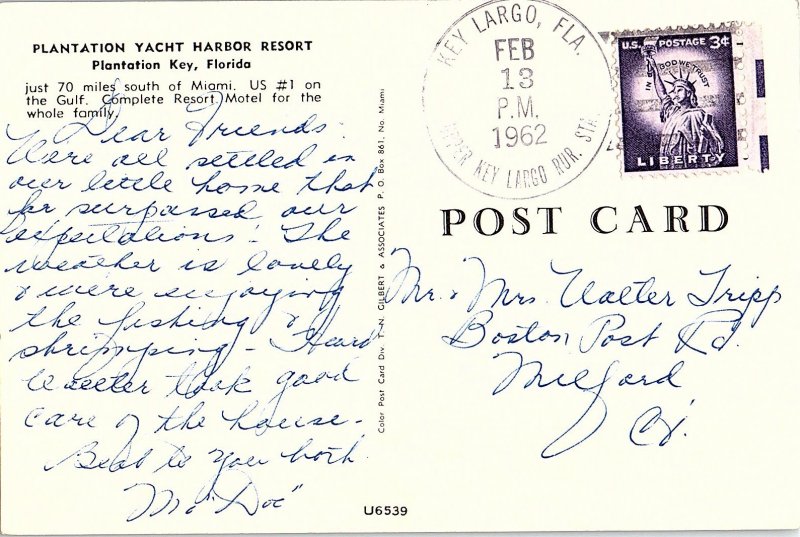 PLANTATION YACHT HARBOR RESORT
Plantation Key, Florida
just 70 miles south of Miami. US #1 on
the Gulf. Complete Resort Motel for the
whole family.
Dear Friends:
We're all settled in
our little home that
far surpassed our
expectations! The
weather is lovely
& we're enjoying
the fishing &
shrimping - Heard
Walter took good
care of the house.
Best to you both
"Doc"
Color Post Card Div. T. N. GILBERT & ASSOCIATES P. O. Box 861, No. Miami
U6539
KEY LARGO, FLA.
FEB
13
P.M.
1962
KEY LARGO RUR. STA.
U.S. POSTAGE 3¢
IN GOD WE TRUST
LIBERTY
POST CARD
Mr. & Mrs Walter Tripp
Boston Post Rd.
Milford